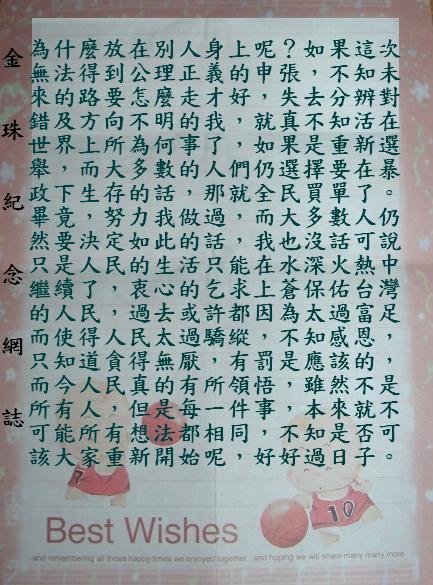 金珠紀念網誌
為什麼放在別人身上呢？如果這次
無法得到公理正義的申張，不知未
來的路要怎麼走才好，失去分辨對
錯及方向不明的我，就真不知活在
世界上所為何事了，如果是重新選
舉，而大多數的人們仍選擇要在暴
政下生存的話，那就全民買單了。
畢竟，努力我做過，而大多數人仍
然要決定如此的話，我也沒話可說
只是人民的生活只能在水深火熱中
繼續了，衷心的乞求上蒼保佑台灣
的人民過去或許都因為太過富足，
而使得人民太過驕縱，不知感恩，
只知道貪得無厭，有罰是應該的，
而今人民真的有所領悟，雖然不是
所有人，但是每一件事本來就不可
可能所有想法都相同，不知是否
該大家重新開始呢，好好過日子。
Best Wishes
and remembering all those happy times we enjoyed together and hoping we will share many many more